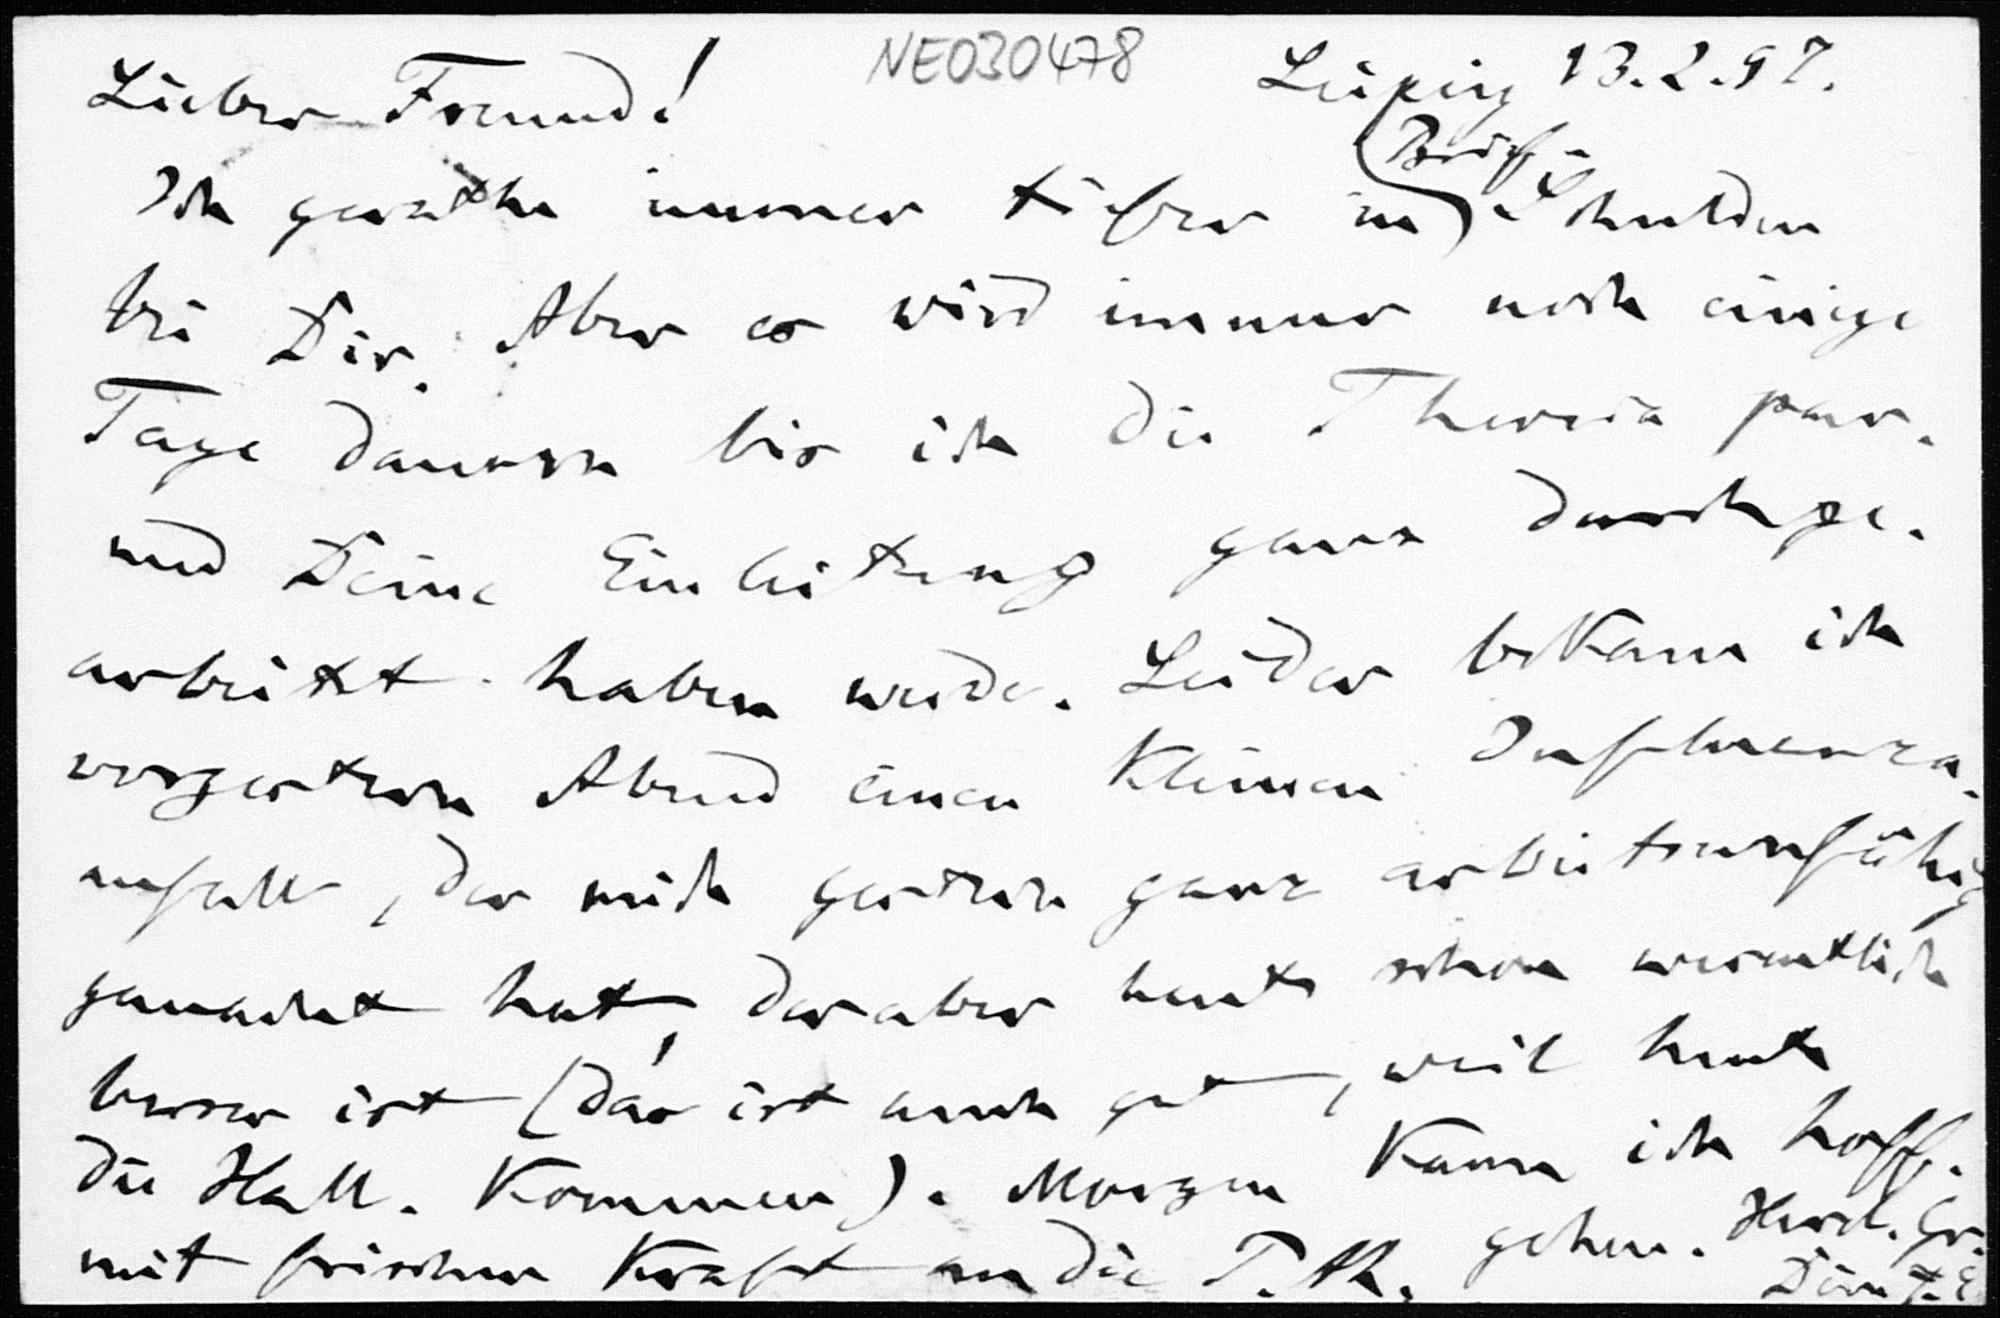 NE030478
Leipzig 13.2.97.
Lieber Freund!
Ich gerathe immer tiefer in Brief-Schulden
bei Dir. Aber es wird immer noch einige
Tage dauern bis ich die Theoria par.
und Deine Einleitung ganz durchge-
arbeitet haben werde. Leider bekam ich
vorgestern Abend einen kleinen Influenza-
anfall, der mich gestern ganz arbeitsunfähig
gemacht hat, der aber heute schon wesentlich
besser ist (das ist auch gut, weil heute
die Hall. kommen). Morgen kann ich hoff.
mit frischer Kraft an die gehen. Herzl. Gr.